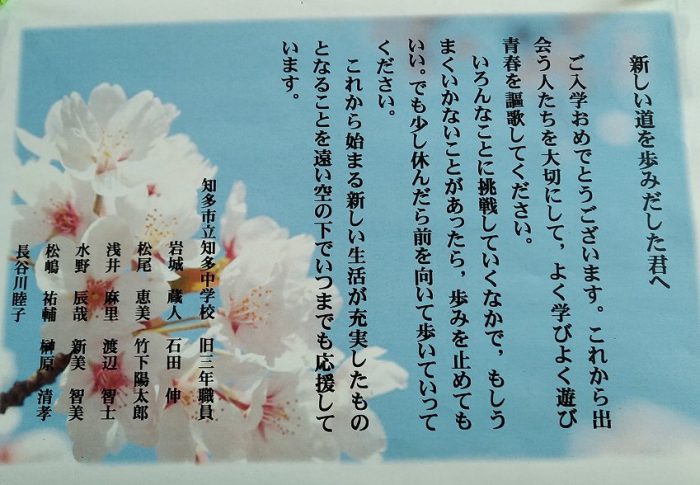 新しい道を歩みだした君へ
ご入学おめでとうございます。これから出
会う人たちを大切にして，よく学びよく遊び
青春を謳歌してください。
いろんなことに挑戦していくなかで，もしう
まくいかないことがあったら，歩みを止めても
いい。でも少し休んだら前を向いて歩いていって
ください。
これから始まる新しい生活が充実したもの
となることを遠い空の下でいつまでも応援して
います。
知多市立知多中学校　旧三年職員
岩城　蔵人　石田　伸
松尾　恵美　竹下陽太郎
浅井　麻里　渡辺　智士
水野　辰哉　新美　智美
松嶋　祐輔　榊原　清孝
長谷川睦子